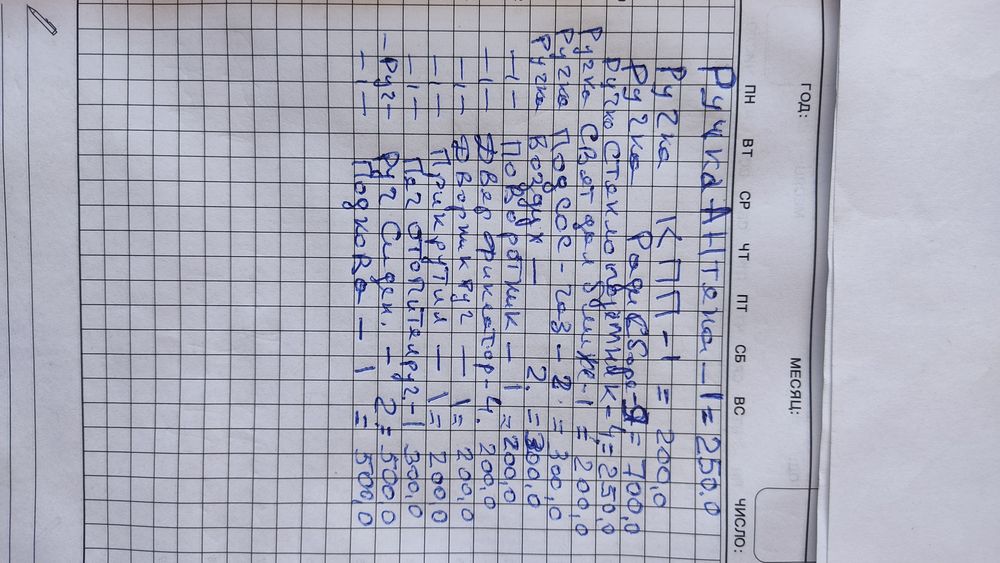 ГОД: МЕСЯЦ: ЧИСЛО:
ПН ВТ СР ЧТ ПТ СБ ВС
Ручка Антена - 1 = 250,0
Ручка КПП - 1 = 200,0
Ручка Ради Сборе - = 700,0
Ручка стеклоподъмник - 4 = 250,0
Ручка Свят дал ближе - 1 = 200,0
Ручка Подсос - газ - 2. = 300,0
Ручка Воздух — 2. = 300,0
— 1 — Поворотник — 1 = 200,0
— 1 — Двер фиксатор - 4. 200,0
— 1 — Дворник руч — 1 = 200,0
— 1 — Прикрутил — 1 = 200,0
— 1 — Печ отопител руч. - 1 300,0
- Руч - Руч Сиден. - 2. = 500,0
— 1 — Подкова — 1 = 500,0